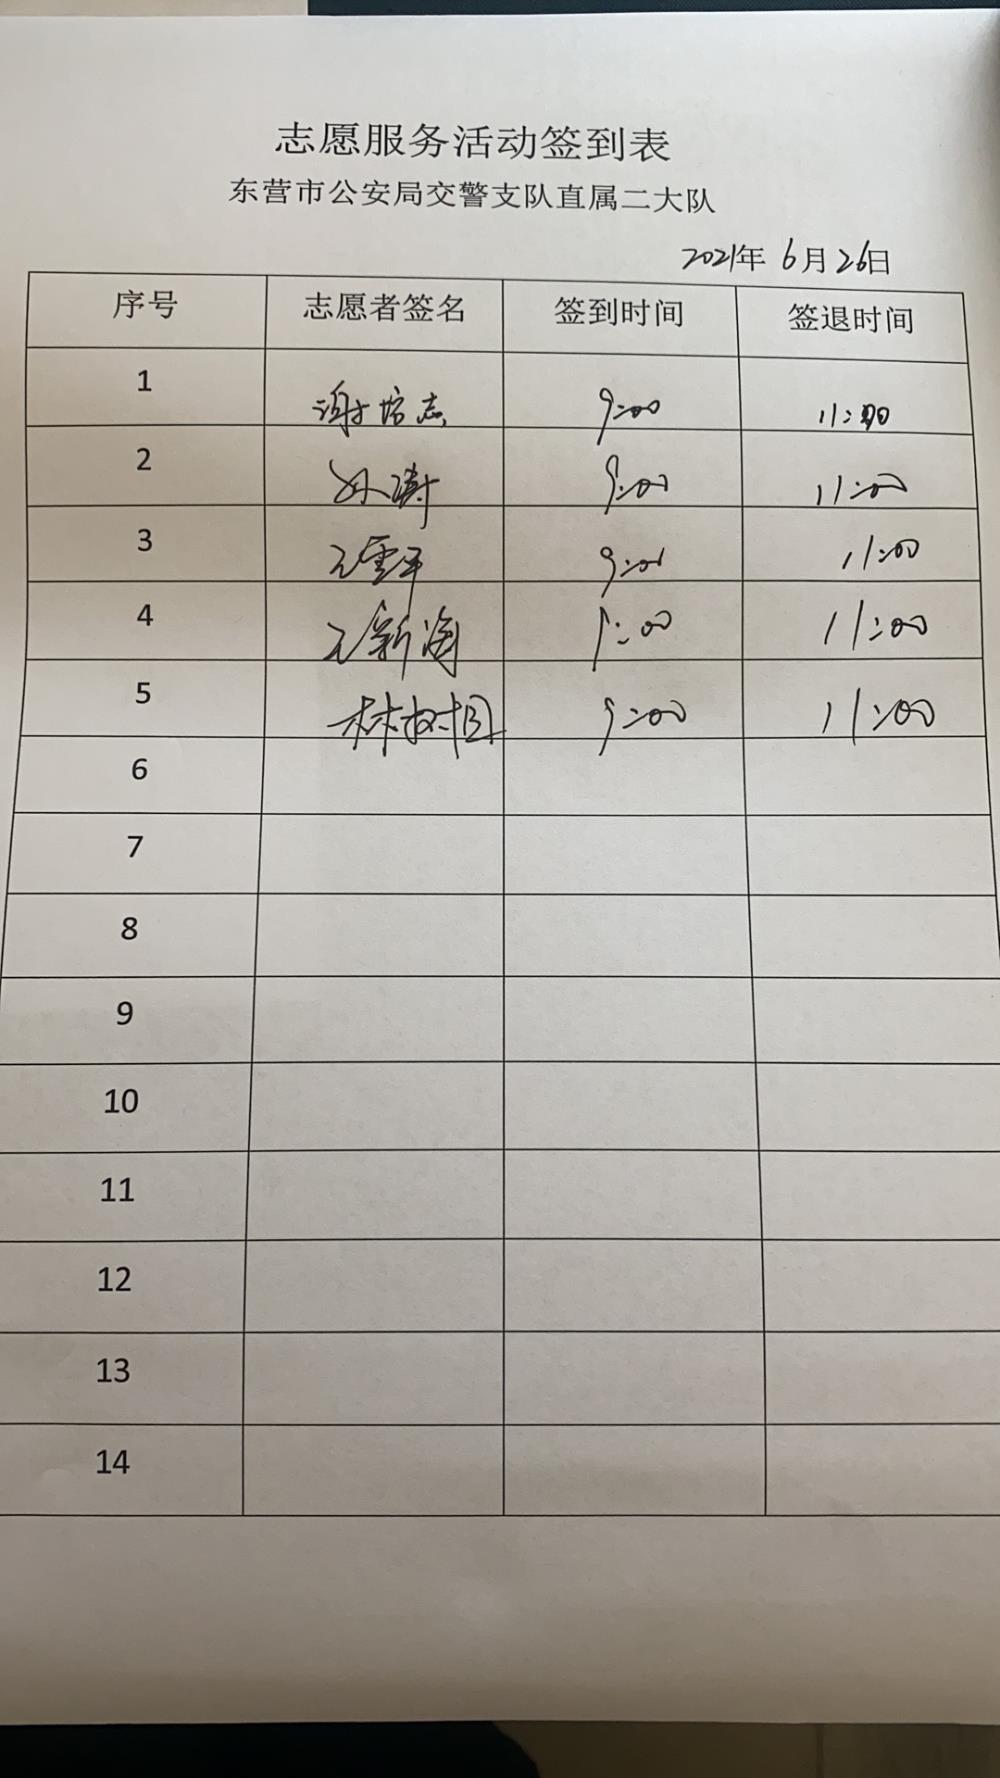 志愿服务活动签到表
东营市公安局交警支队直属二大队
2021年 6月26日
序号 志愿者签名 签到时间 签退时间
1 谢培志 9:00 11:00
2 孙涛 9:00 11:00
3 王雪平 9:00 11:00
4 王新海 9:00 11:00
5 林树国 9:00 11:00
6
7
8
9
10
11
12
13
14